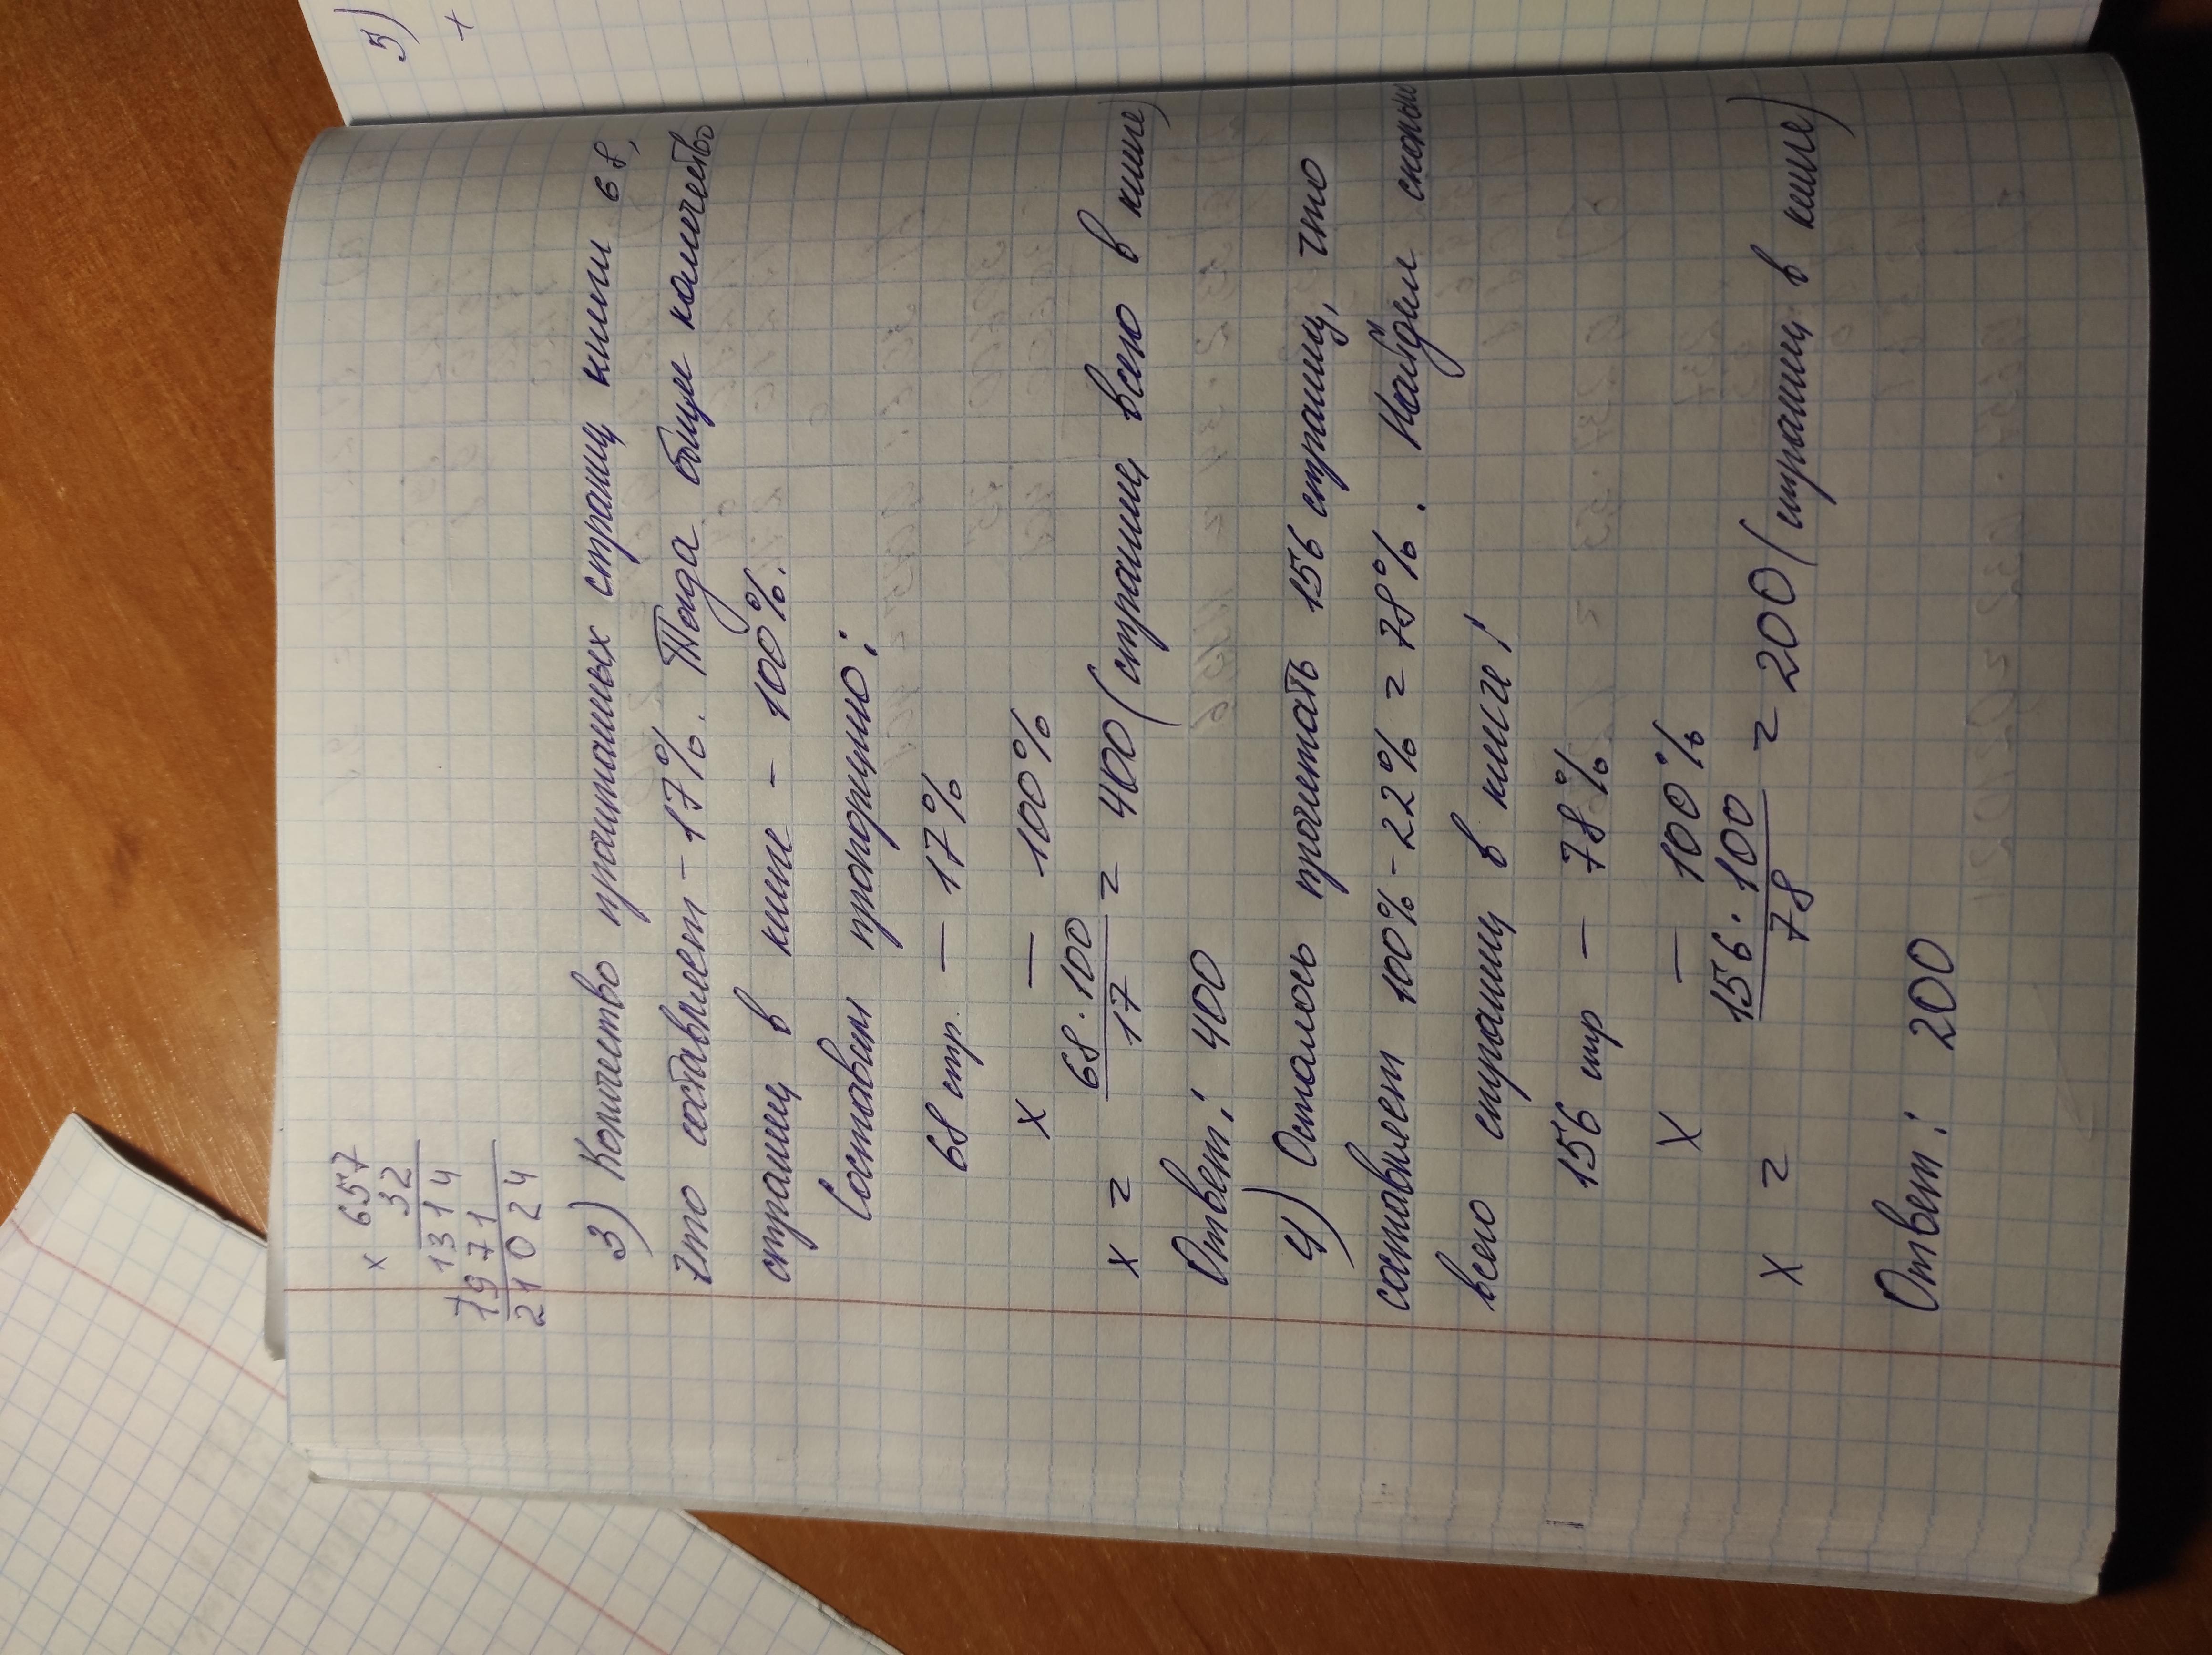 × 657
32
1314
1971
21024
3) Количество прочитанных страниц книги 68,
что составляет - 17%. Тогда общее количество
страниц в книге - 100%.
Составим пропорцию:
68 стр. — 17%
x — 100%
x = 68 · 100 / 17 = 400 (страниц всего в книге)
Ответ: 400
4) Осталось прочитать 156 страниц, что
составляет 100% - 22% = 78%. Найдём сколько
всего страниц в книге:
156 стр — 78%
x — 100%
x = 156 · 100 / 78 = 200 (страниц в книге)
Ответ: 200
5)
+